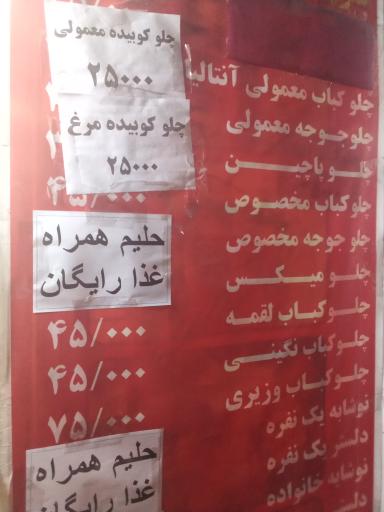 چلو کوبیده معمولی
۲۵۰۰۰
چلو کوبیده مرغ
۲۵۰۰۰
چلو کباب معمولی آنتالیا
چلو جوجه معمولی
چلو پاچین
چلو کباب مخصوص
چلو جوجه مخصوص
چلو میکس
چلو کباب لقمه
چلوکباب نگینی
چلوکباب وزیری
نوشابه یک نفره
دلستر یک نفره
نوشابه خانواده
دلستر
حلیم همراه
غذا رایگان
۴۵/۰۰۰
۴۵/۰۰۰
۷۵/۰۰۰
حلیم همراه
غذا رایگان